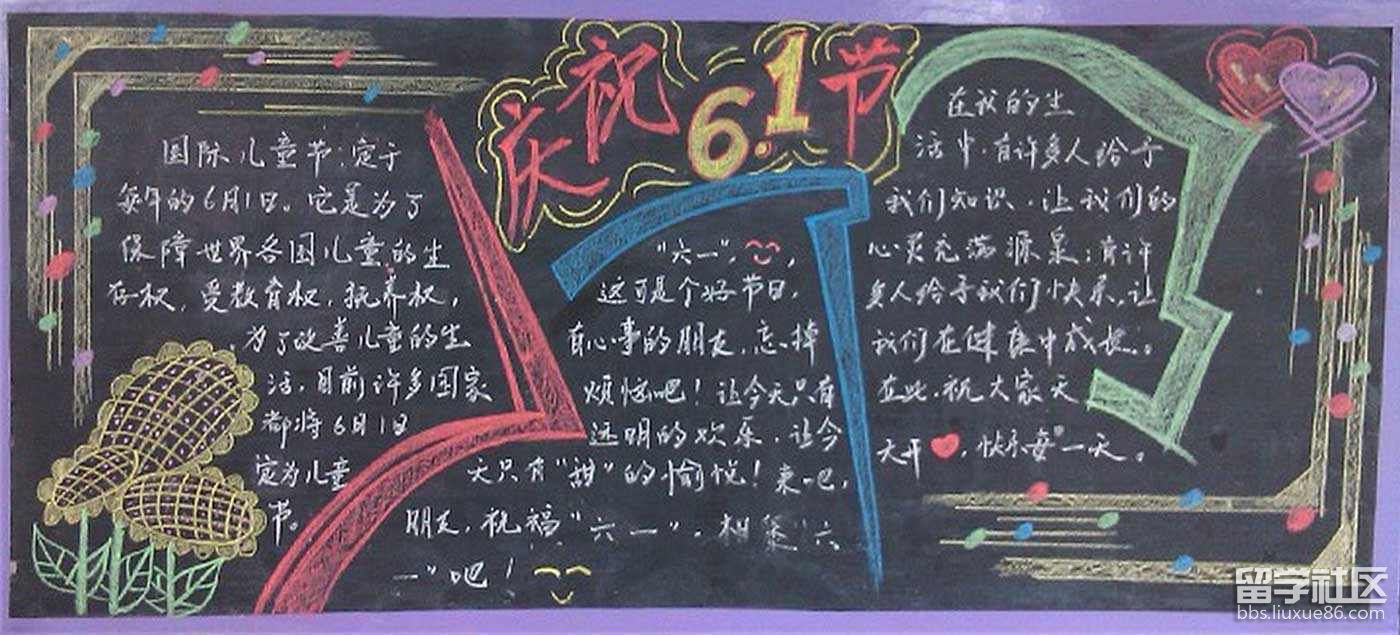 庆祝6.1节
国际儿童节:定于
每年的6月1日。它是为了
保障世界各国儿童的生
存权,受教育权,抚养权,
为了改善儿童的生
活,目前许多国家
都将6月1日
定为儿童
节。
"六一",
这可是个好节日,
有心事的朋友,忘掉
烦恼吧!让今天只有
透明的欢乐,让今
天只有"甜"的愉悦!来吧,
朋友,祝福"六一",相聚"六
一"吧!
在我的生
活中,有许多人给予
我们知识,让我们的
心灵充满源泉;有许
多人给予我们快乐,让
我们在健康中成长。
在此,祝大家天
天开❤,快乐每一天。
留学社区
bbs.liuxue86.com